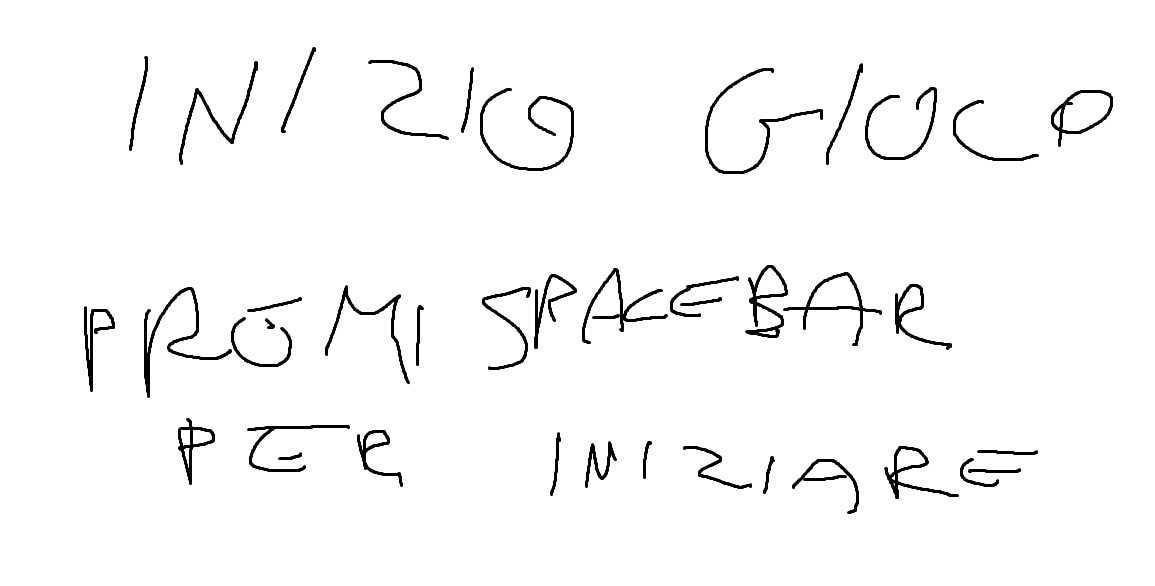 INIZIO GIOCO
PROMI SPACEBAR
PER INIZIARE